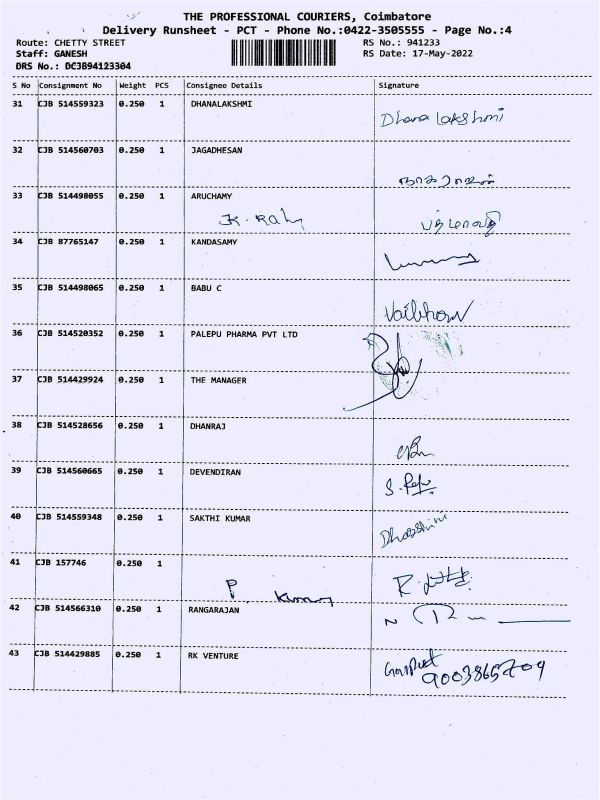 THE PROFESSIONAL COURIERS, Coimbatore
Delivery Runsheet - PCT - Phone No.:0422-3505555 - Page No.:4
Route: CHETTY STREET RS No.: 941233
Staff: GANESH RS Date: 17-May-2022
DRS No.: DCJB94123304
S No Consignment No Weight PCS Consignee Details Signature
31 CJB 514559323 0.250 1 DHANALAKSHMI
Dhana lakshmi
32 CJB 514560703 0.250 1 JAGADHESAN
நாகராஜன்
33 CJB 514498055 0.250 1 ARUCHAMY
பத்மாவதி
34 CJB 87765147 0.250 1 KANDASAMY
35 CJB 514498065 0.250 1 BABU C
Vaibhav
36 CJB 514520352 0.250 1 PALEPU PHARMA PVT LTD
37 CJB 514429924 0.250 1 THE MANAGER
38 CJB 514528656 0.250 1 DHANRAJ
39 CJB 514560665 0.250 1 DEVENDIRAN
40 CJB 514559348 0.250 1 SAKTHI KUMAR
Dharshini
41 CJB 157746 0.250 1
P. Kumar
42 CJB 514566310 0.250 1 RANGARAJAN
43 CJB 514429885 0.250 1 RK VENTURE
9003865709